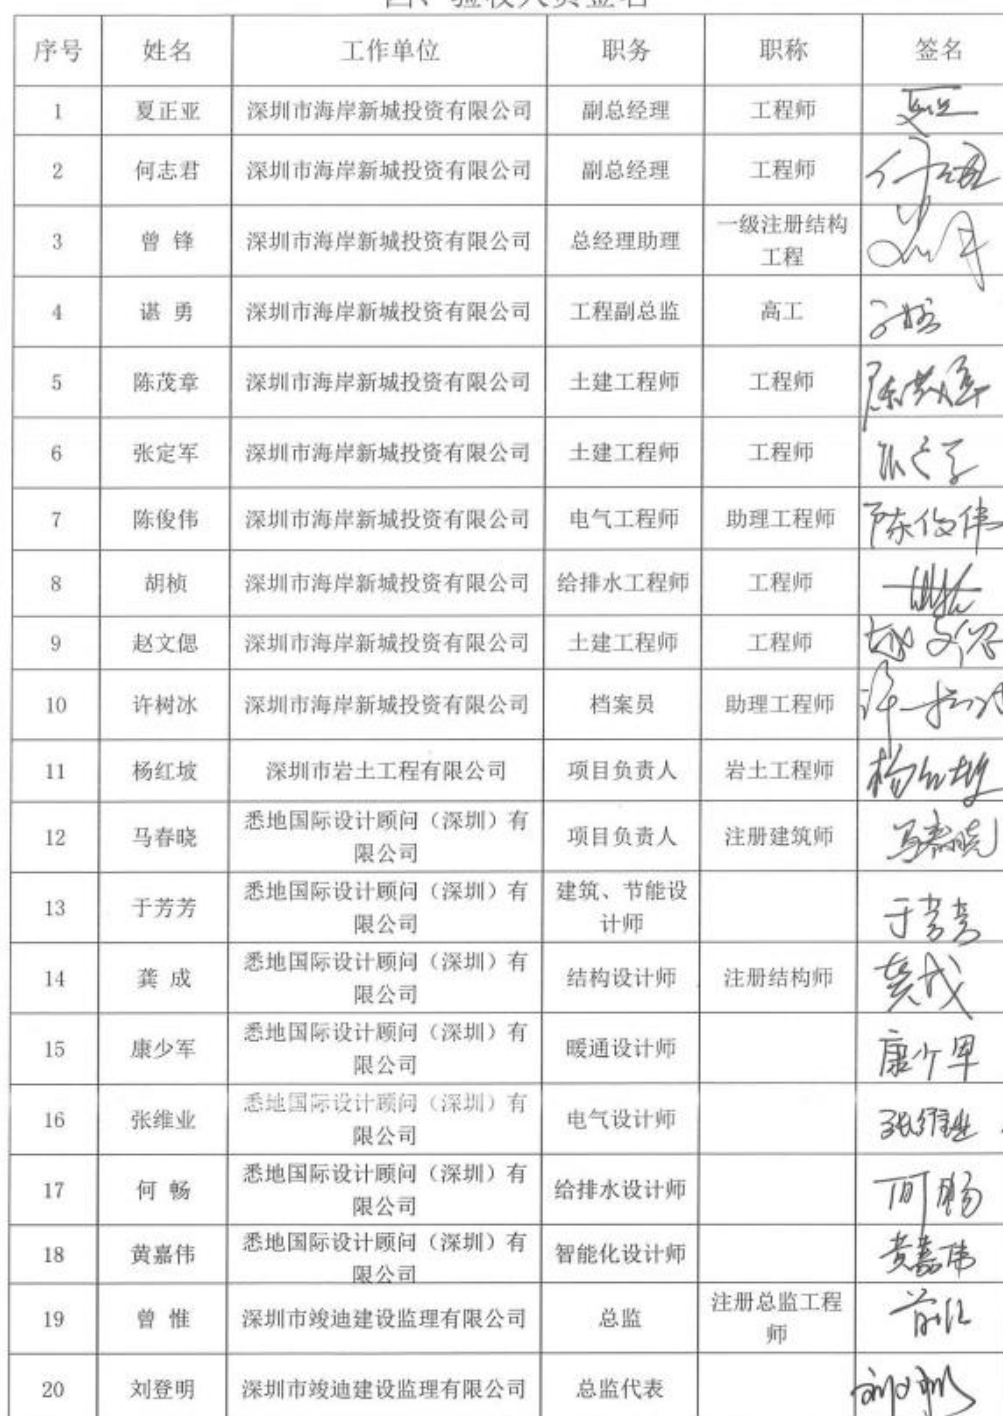 四、验收人员签名
序号 姓名 工作单位 职务 职称 签名
1 夏正亚 深圳市海岸新城投资有限公司 副总经理 工程师
2 何志君 深圳市海岸新城投资有限公司 副总经理 工程师
3 曾 锋 深圳市海岸新城投资有限公司 总经理助理 一级注册结构
工程
4 谌 勇 深圳市海岸新城投资有限公司 工程副总监 高工
5 陈茂章 深圳市海岸新城投资有限公司 土建工程师 工程师
6 张定军 深圳市海岸新城投资有限公司 土建工程师 工程师
7 陈俊伟 深圳市海岸新城投资有限公司 电气工程师 助理工程师 陈俊伟
8 胡桢 深圳市海岸新城投资有限公司 给排水工程师 工程师
9 赵文偲 深圳市海岸新城投资有限公司 土建工程师 工程师 赵文偲
10 许树冰 深圳市海岸新城投资有限公司 档案员 助理工程师
11 杨红坡 深圳市岩土工程有限公司 项目负责人 岩土工程师 杨红坡
12 马春晓 悉地国际设计顾问（深圳）有
限公司 项目负责人 注册建筑师 马春晓
13 于芳芳 悉地国际设计顾问（深圳）有
限公司 建筑、节能设
计师 于芳芳
14 龚 成 悉地国际设计顾问（深圳）有
限公司 结构设计师 注册结构师 龚成
15 康少军 悉地国际设计顾问（深圳）有
限公司 暖通设计师 康少军
16 张维业 悉地国际设计顾问（深圳）有
限公司 电气设计师 张维业
17 何 畅 悉地国际设计顾问（深圳）有
限公司 给排水设计师 何畅
18 黄嘉伟 悉地国际设计顾问（深圳）有
限公司 智能化设计师 黄嘉伟
19 曾 惟 深圳市竣迪建设监理有限公司 总监 注册总监工程
师
20 刘登明 深圳市竣迪建设监理有限公司 总监代表